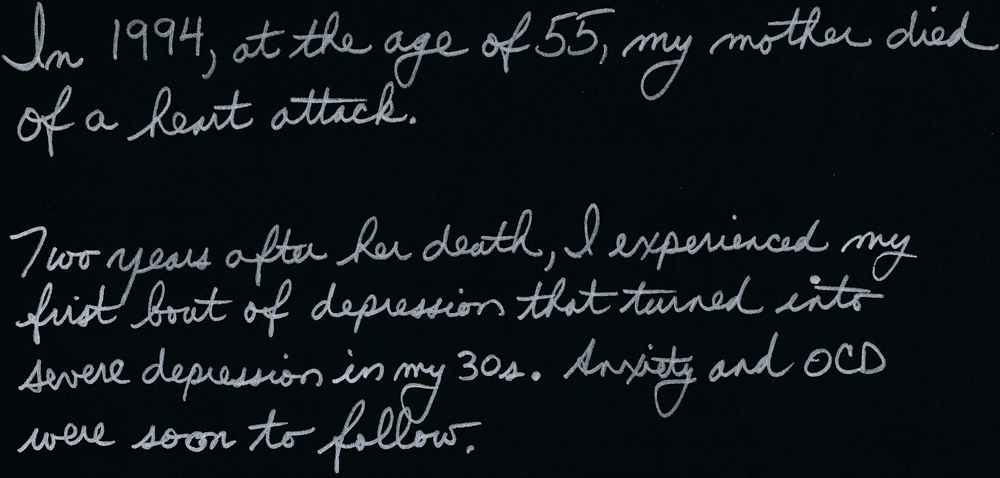 In 1994, at the age of 55, my mother died
of a heart attack.
Two years after her death, I experienced my
first bout of depression that turned into
severe depression in my 30s. Anxiety and OCD
were soon to follow.